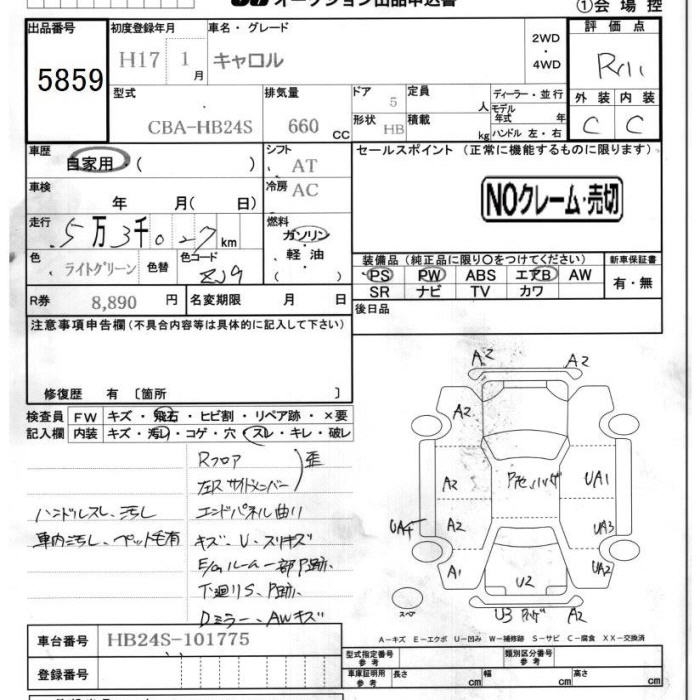 オークション出品申込書
①会場控
出品番号
5859
初度登録年月
H17 1月
車名・グレード
キャロル
2WD
・
4WD
評価点
R
外装 内装
C C
型式
CBA-HB24S
排気量
660 CC
ドア
5
形状
HB
定員
人
積載
kg
ディーラー・並行
モデル年式 年
ハンドル 左・右
車歴
自家用 ( )
シフト
AT
車検
年 月( 日)
冷房
AC
走行
5万3千027km
燃料
ガソリン
・
軽油
( )
色
ライトグリーン
色替
色コード
ZJ9
R券
8,890 円
名変期限 月 日
セールスポイント (正常に機能するものに限ります)
NOクレーム・売切
装備品 (純正品に限り〇をつけてください)
PS PW ABS エアB AW
SR ナビ TV カワ
新車保証書
有・無
後日品
注意事項申告欄(不具合内容等は具体的に記入して下さい)
修復歴 有 〔箇所 〕
検査員
記入欄
FW キズ・飛石・ヒビ割・リペア跡・×要
内装 キズ・汚レ・コゲ・穴・スレ・キレ・破レ
Rフロア
左右サイドメンバー
歪
エンドパネル曲り
ハンドルスレ、汚レ
車内汚レ、ペット毛有
キズ、U、スリキズ
E/gルーム一部P跡、
下廻りS、P跡、
Dミラー、AWキズ
A2 A2
A2
A2
UA1
A2
UA4
UA3
A1
UA2
U2
U3
A2
スペア
A－キズ E－エクボ U－凹み W－補修跡 S－サビ C－腐食 XX－交換済
車台番号
HB24S-101775
登録番号
型式指定番号
参考
類別区分番号
参考
車庫証明用
参考
長さ cm 幅 cm 高さ cm